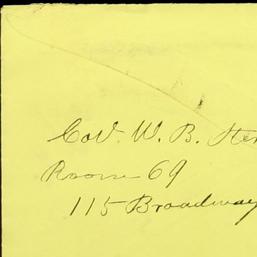 Cov. W. B. Ster
Room 69
115 Broadway